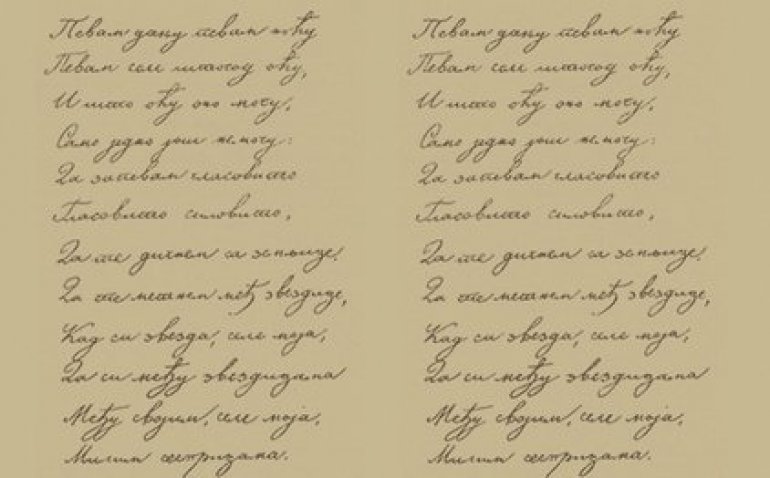 Певам дању певам ноћу
Певам селе штогод оћу,
И што оћу оно могу,
Само једно још не могу:
Да запевам гласовито
Гласовито силовито,
Да те дигнем са земљице,
Да те метнем међ звездице,
Кад си звезда, селе моја,
Да си међу звездицама
Међу својим, селе моја,
Милим сестрицама.
Певам дању певам ноћу
Певам селе штогод оћу,
И што оћу оно могу,
Само једно још не могу:
Да запевам гласовито
Гласовито силовито,
Да те дигнем са земљице,
Да те метнем међ звездице,
Кад си звезда, селе моја,
Да си међу звездицама
Међу својим, селе моја,
Милим сестрицама.